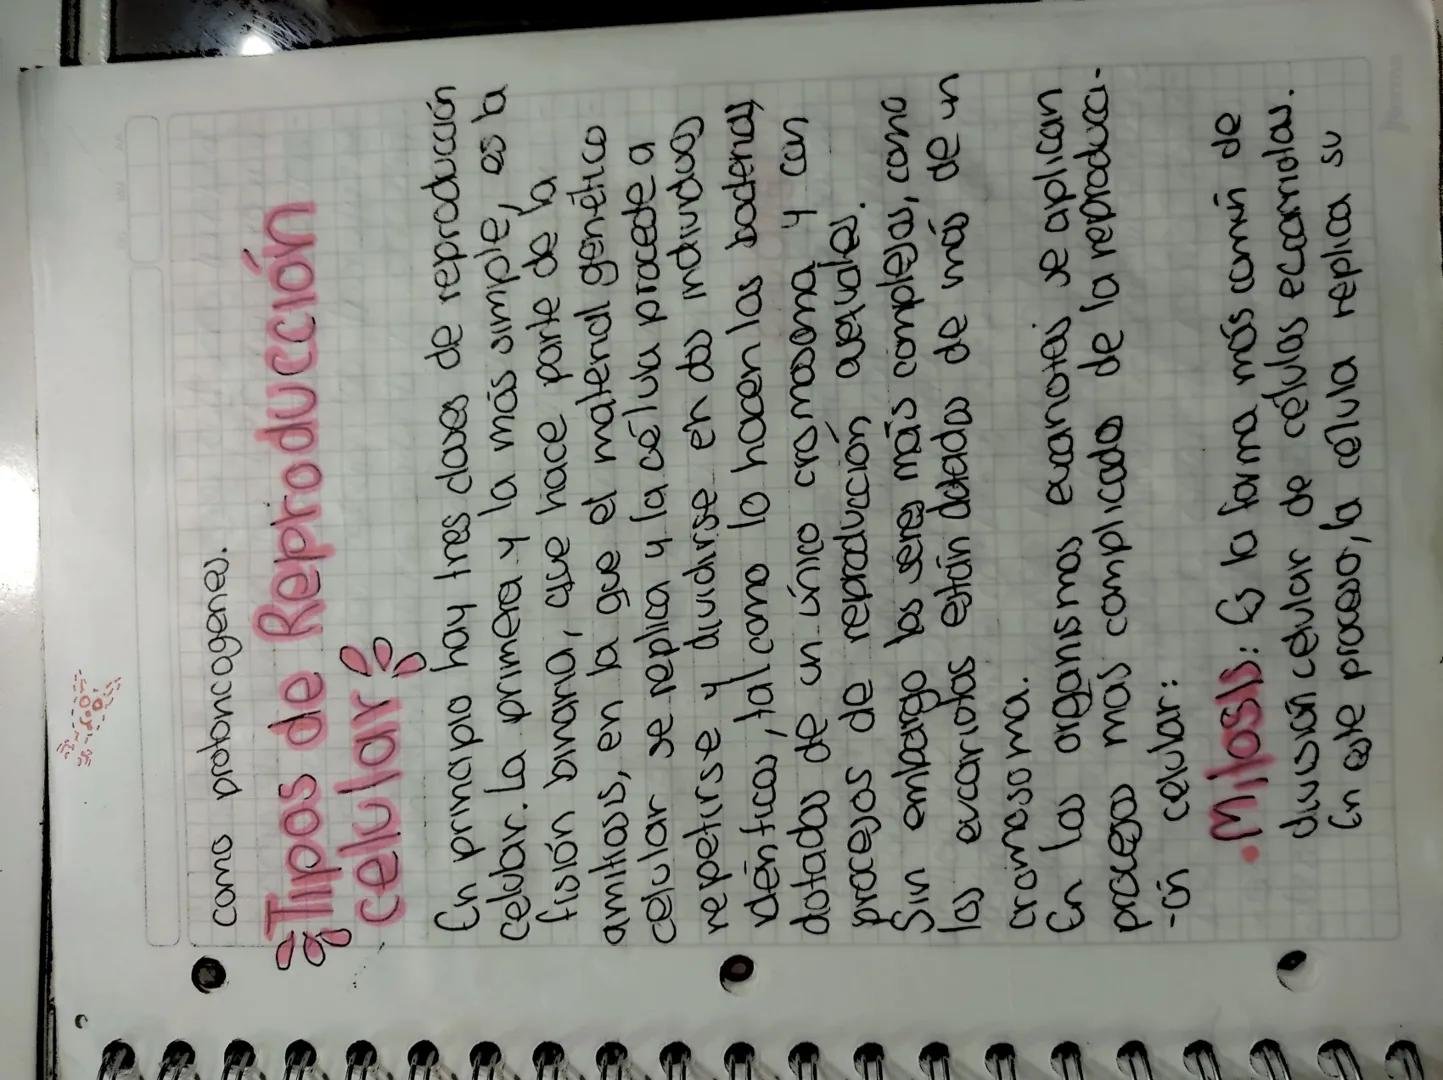 como protoncogenes.
Tipos de Reproducción
celular
En principio hay tres clases de reproducción
celular. La primera y la más simple, es la
fisión binaria, que hace parte de la
amitosis, en la que el material genético
celular se replica y la célula procede a
repetirse y dividirse en dos individuos
idénticos, tal como lo hacen las bacterias
dotados de un único cromosoma y con
procesos de reproducción axexuales.
Sin embargo los seres más complejos, como
los eucariotas están dotados de más de un
cromosoma.
En los organismos eucariotes se aplican
procesos mas complicados de la reproducci-
-ón celular:
• Mitosis: Es la forma más común de
división celular de células eucariotas.
En este proceso, la célula replica su